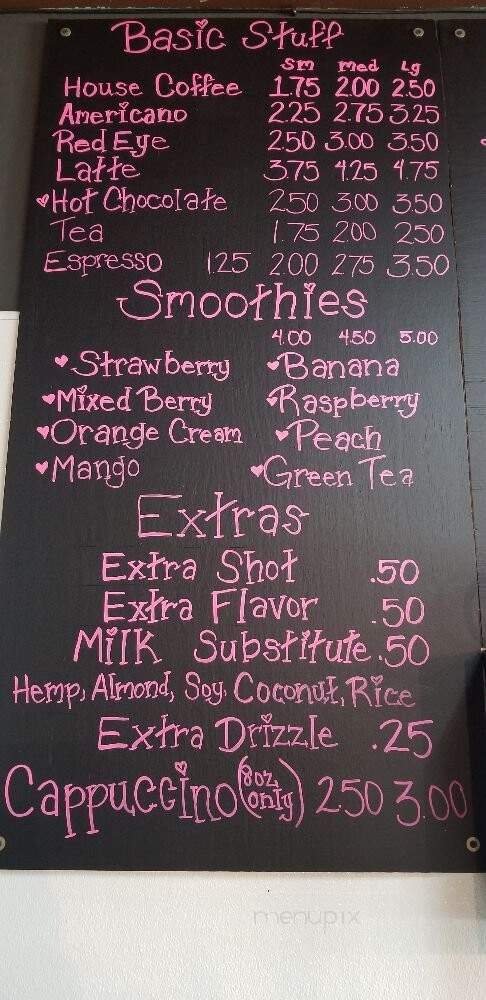 Basic Stuff
Sm Med Lg
House Coffee 1.75 2.00 2.50
Americano 2.25 2.75 3.25
Red Eye 2.50 3.00 3.50
Latte 3.75 4.25 4.75
Hot Chocolate 2.50 3.00 3.50
Tea 1.75 2.00 2.50
Espresso 1.25 2.00 2.75 3.50
Smoothies
4.00 4.50 5.00
Strawberry Banana
Mixed Berry Raspberry
Orange Cream Peach
Mango Green Tea
Extras
Extra Shot .50
Extra Flavor .50
Milk Substitute .50
Hemp, Almond, Soy, Coconut, Rice
Extra Drizzle .25
Cappuccino (8oz. only) 2.50 3.00
menupix